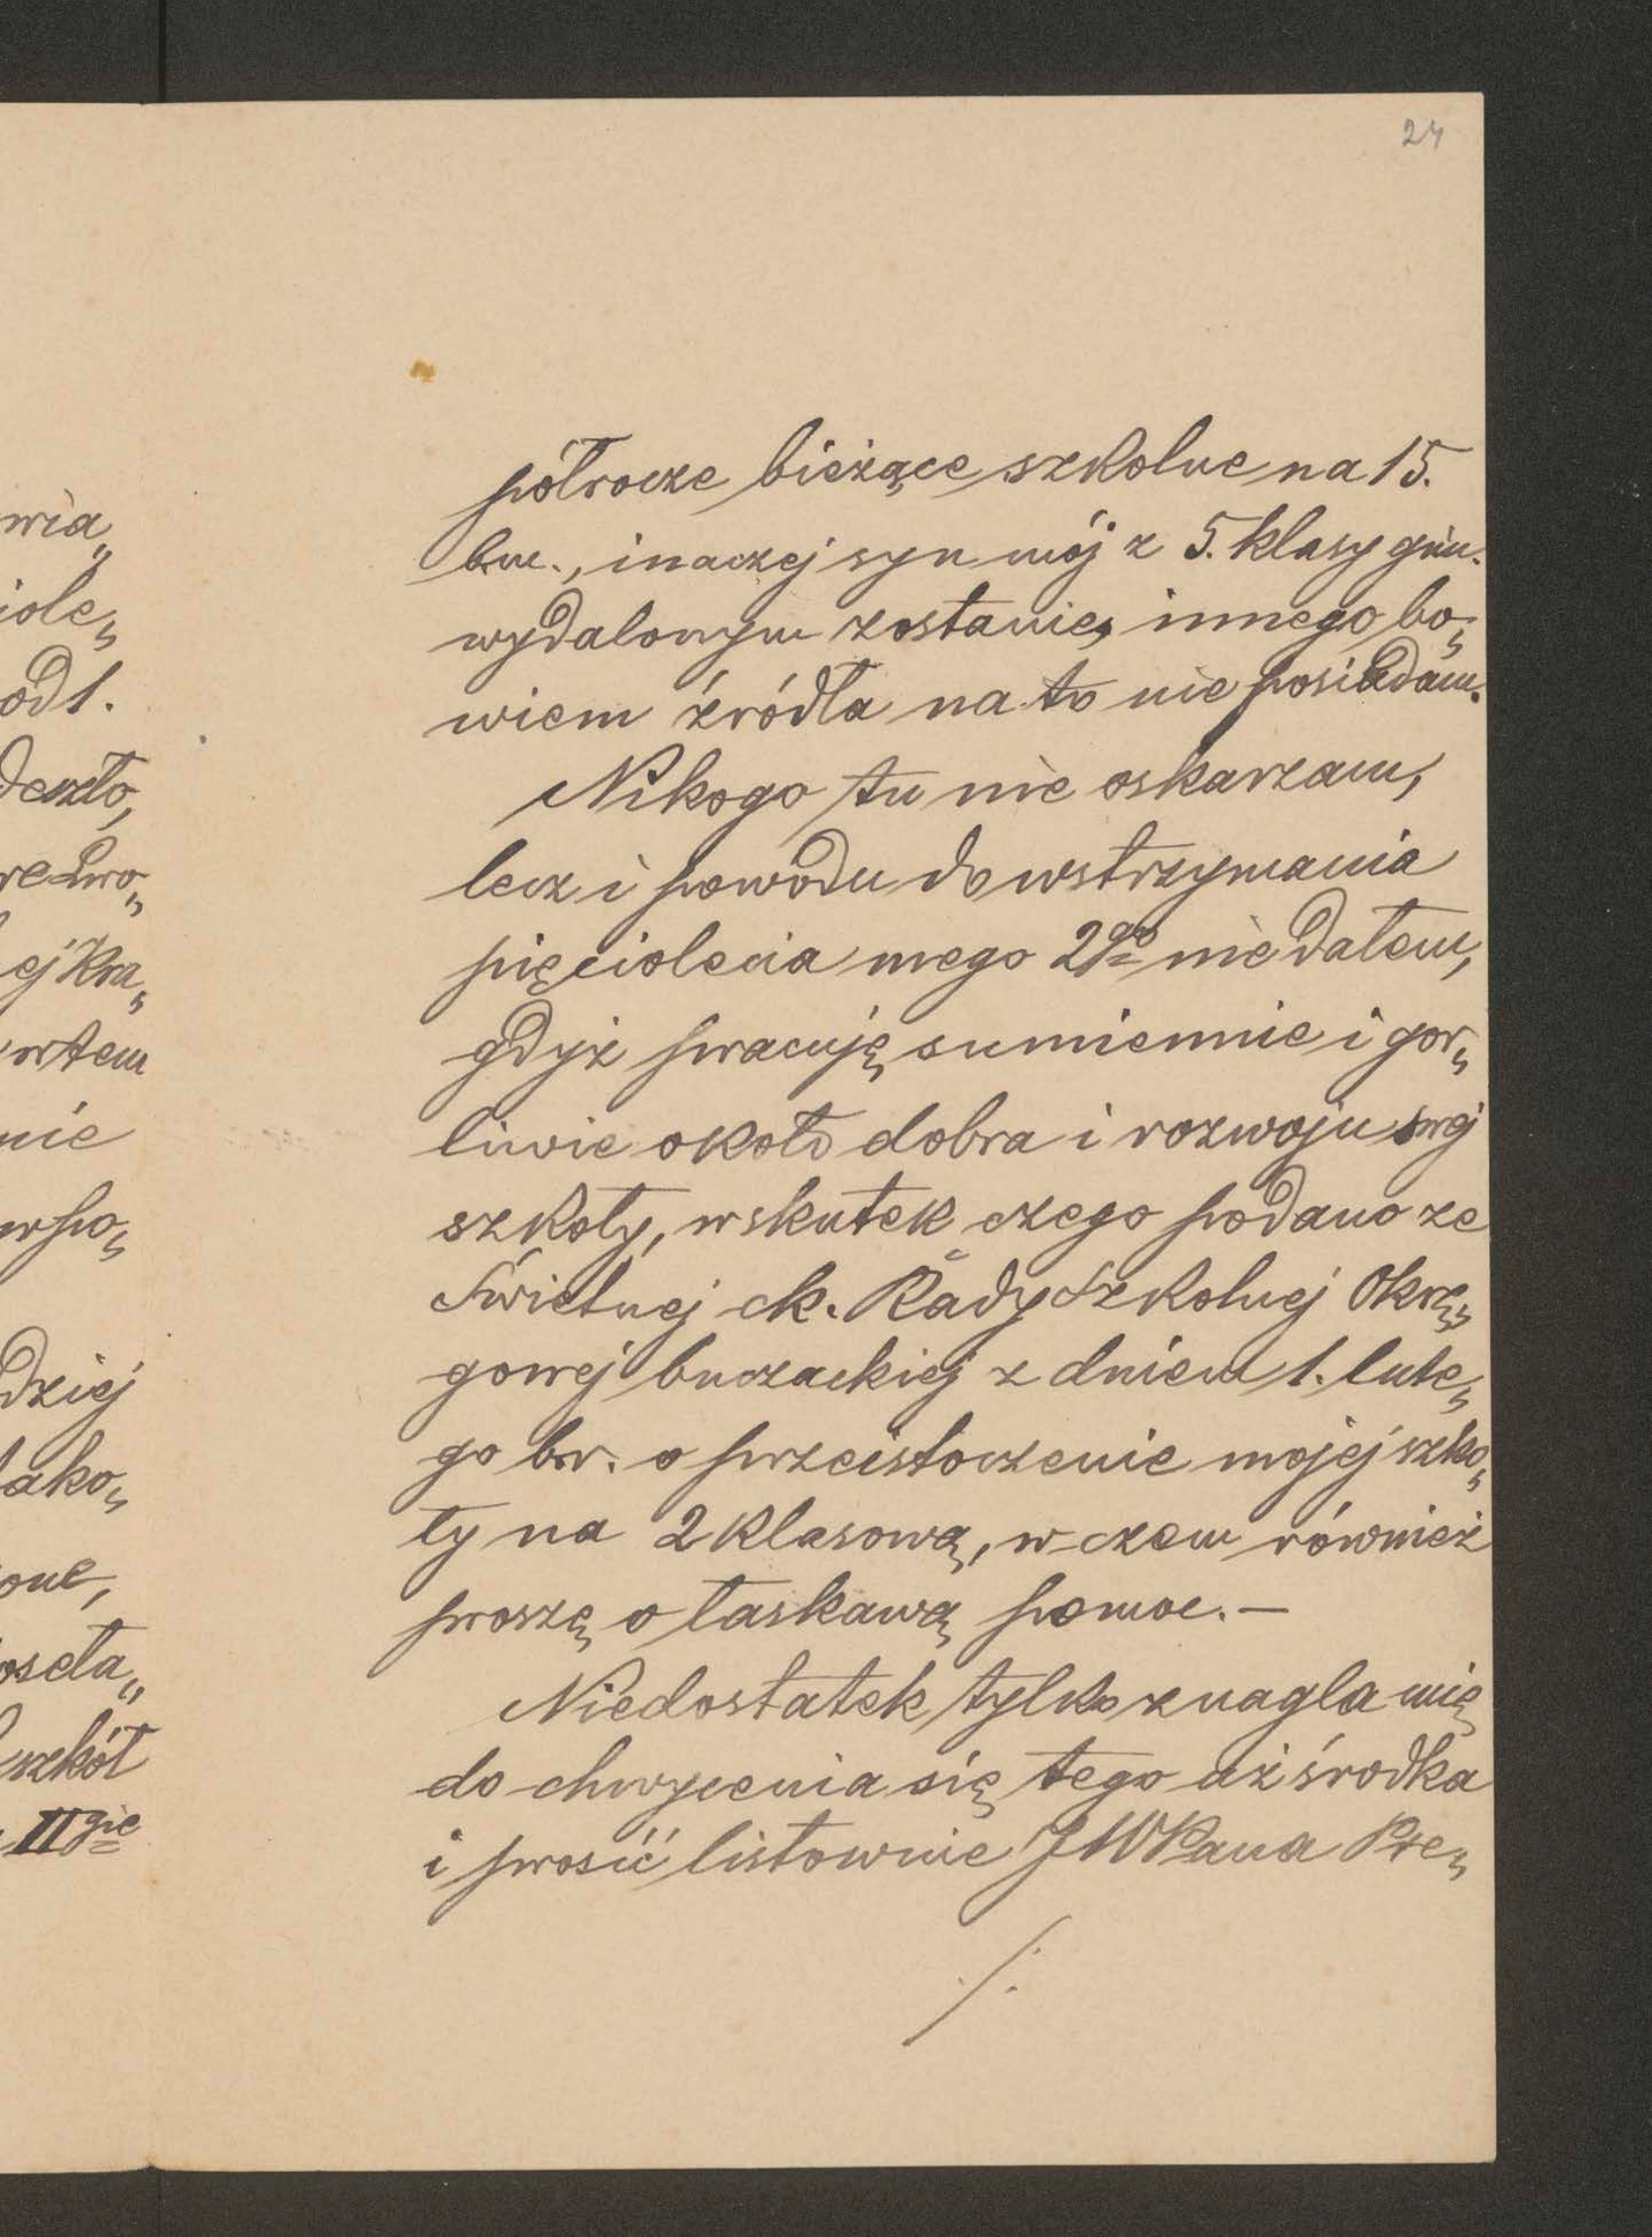 24
półrocze bieżące szkolne na 15.
bm., inaczej syn mój z 5. klasy gim.
wydalonym zostanie, innego bo„
wiem źródła na to nie posiadam.
Nikogo tu nie oskarzam,
lecz i powodu do wstrzymania
pięciolecia mego 2go nie dałem,
gdyż pracuję sumiennie i gor„
liwie około dobra i rozwoju swej
szkoły, wskutek czego podano ze
Świetnej ck. Rady Szkolnej Okrę„
gowej buczackiej z dniem 1. lute„
go br. o przeistoczenie mojej szko„
ły na 2 klasową, w czem również
proszę o łaskawą pomoc. —
Niedostatek tylko znagla mię
do chwycenia się tego aż środka
i prosić listownie JWPana Pre„
./.
wia„
iole„
od 1.
deszło,
re Lwo„
ej Kra„
wtem
nie
wpo„
dziej
ako„
one,
oseła„
szkół
IIgie